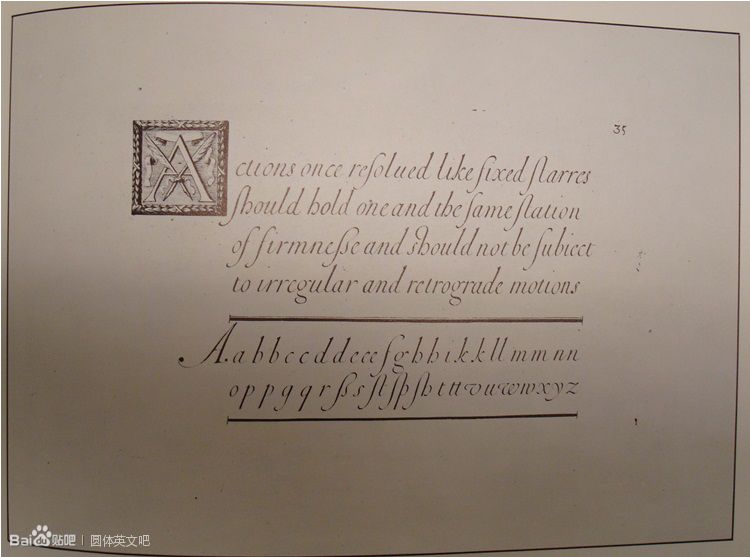 35
Actions once reſolued like fixed ſtarres
ſhould hold one and the ſame ſtation
of firmneſſe and ſhould not be ſubiect
to irregular and retrograde motions
A. a b b c c d d e c e ſ g h h i k k l l m m n n
o p p g q r ſs s ſt ſp ſh t tt v u w w x y z
Bai du 贴吧 | 圆体英文吧